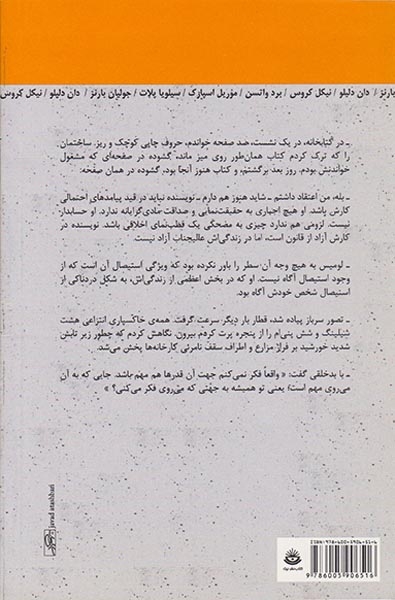 بارنز / دان دلیلو / نیکل کروس / برد واتسن / موریل اسپارک / سیلویا پلات / جولیان بارنز / دان دلیلو / نیکل کروس
ـ در کتابخانه، در یک نشست، صد صفحه خواندم، حروف چاپی کوچک و ریز. ساختمان
را که ترک کردم کتاب همان‌طور روی میز ماند، گشوده در صفحه‌ای که مشغول
خواندنش بودم. روز بعد برگشتم، و کتاب هنوز آنجا بود، گشوده در همان صفحه.
ـ بله، من اعتقاد داشتم ـ شاید هنوز هم دارم ـ نویسنده نباید در قید پیامدهای احتمالی
کارش باشد. او هیچ اجباری به حقیقت‌نمایی و صداقت مادی‌گرایانه ندارد. او حسابدار
نیست. لزومی هم ندارد چیزی به مضحکی یک قطب‌نمای اخلاقی باشد. نویسنده در
کارش آزاد از قانون است، اما در زندگی‌اش عالیجناب آزاد نیست.
ـ لومیس به هیچ وجه آن سطر را باور نکرده بود که ویژگی استیصال آن است که از
وجود استیصال آگاه نیست. او که در بخش اعظمی از زندگی‌اش، به شکل دردناکی از
استیصال شخص خودش آگاه بود.
ـ تصور سرباز پیاده شد، قطار بار دیگر سرعت گرفت. همه‌ی خاکسپاری انتزاعی هشت
شیلینگ و شش پنی‌ام را از پنجره پرت کردم بیرون. نگاهش کردم که چطور زیر تابش
شدید خورشید بر فراز مزارع و اطراف سقف نامرئی کارخانه‌ها پخش می‌شد.
ـ با بدخلقی گفت: « واقعاً فکر نمی‌کنم جهت آن قدرها هم مهم باشد. جایی که به آن
می‌روی مهم است؛ یعنی تو همیشه به جهتی که می‌روی فکر می‌کنی؟ »
javad atashbari
ISBN: 978-600-5906-51-6
9 786005 906516